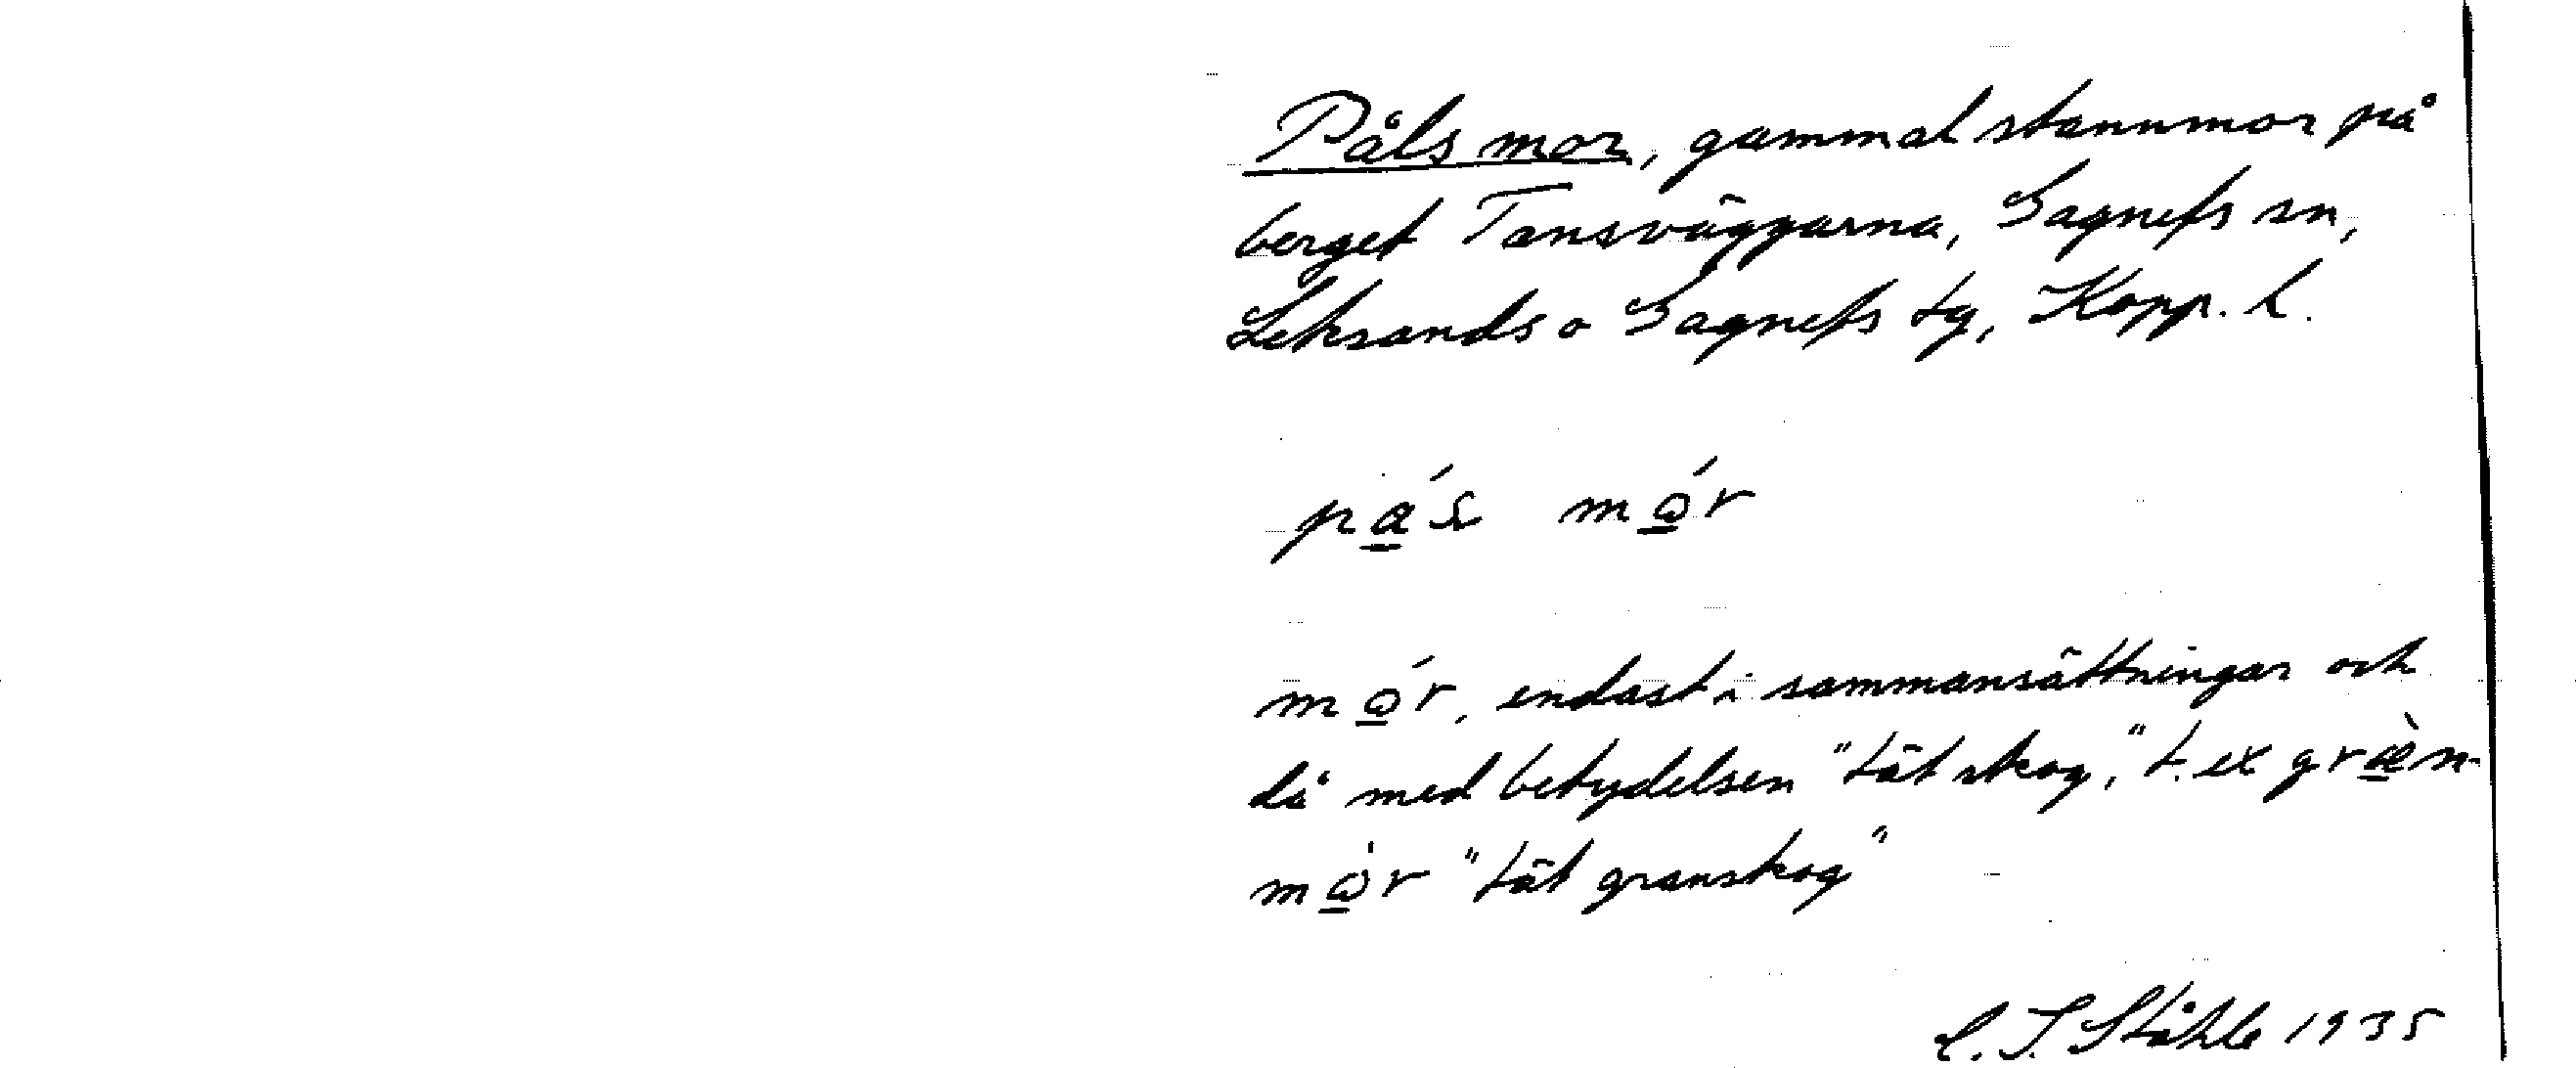 Påls mor, gammal stammor på
berget Tansväggarna, Gagnefs sn,
Leksands o Gagnefs tg, Kopp. l.
pa̲´s mo̲´r
mo̲´r, endast i sammansättningar och
då med betydelsen "tät skog," t. ex græ̲̀n-
mò̲r "tät granskog"
C. I. Ståhle 1935